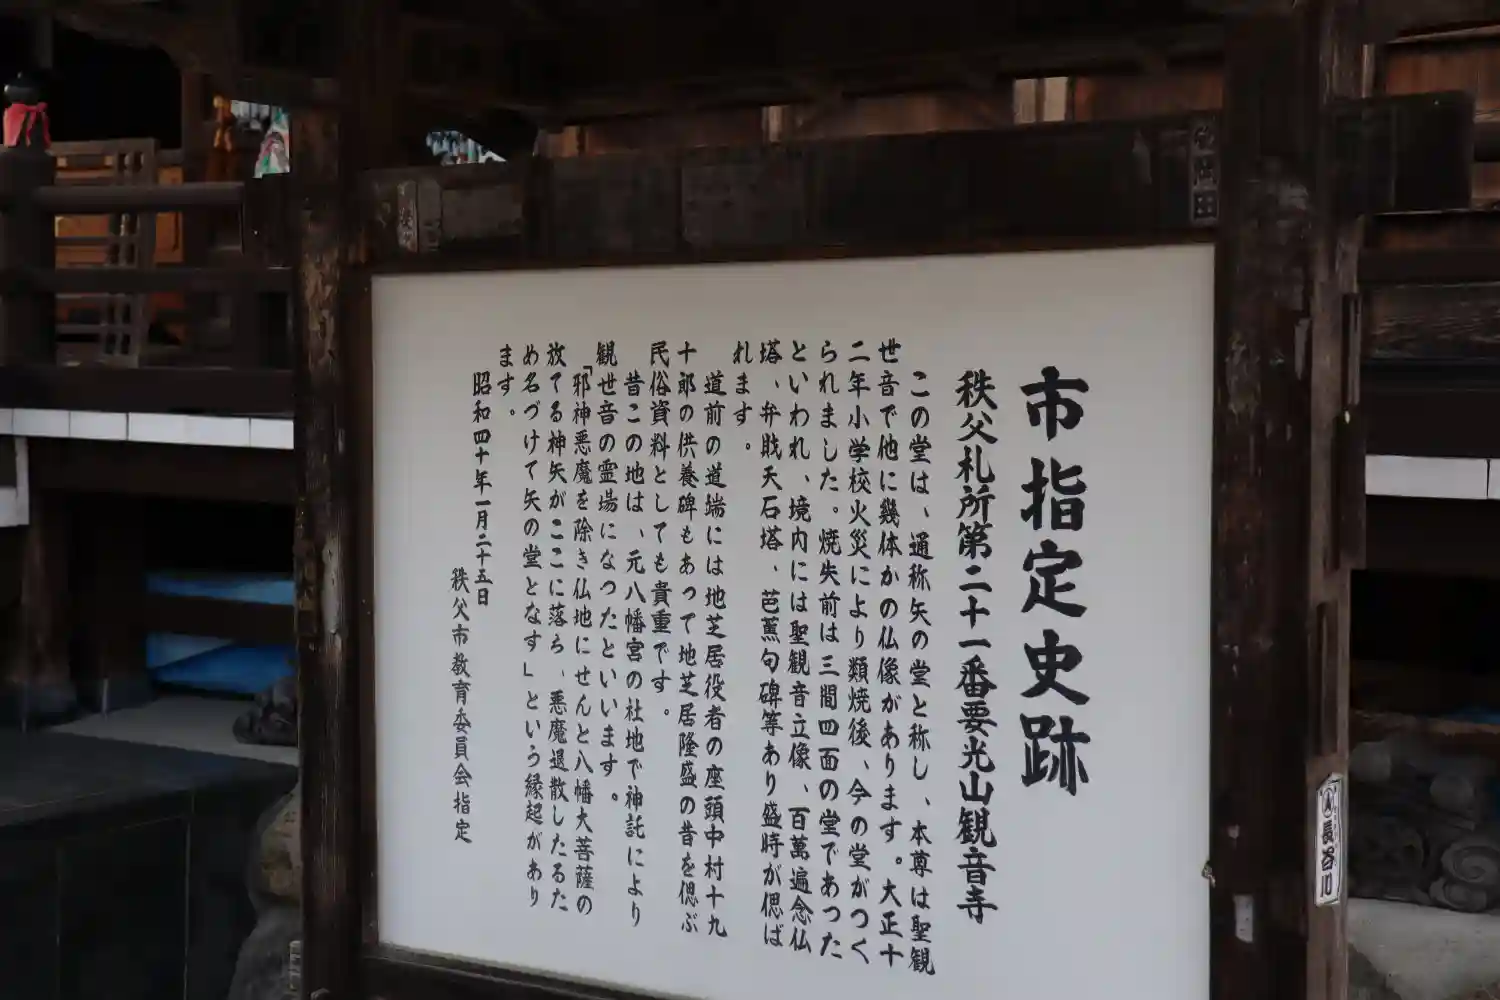 市指定史跡
秩父札所第二十一番要光山観音寺
この堂は、通称矢の堂と称し、本尊は聖観
世音で他に幾体かの仏像があります。大正十
二年小学校火災により類焼後、今の堂がつく
られました。焼失前は三間四面の堂であった
といわれ、境内には聖観音立像、百萬遍念仏
塔、弁戝天石塔、芭蕉句碑等あり盛時が偲ば
れます。
道前の道端には地芝居役者の座頭中村十九
十郎の供養碑もあって地芝居隆盛の昔を偲ぶ
民俗資料としても貴重です。
昔この地は、元八幡宮の社地で神託により
観世音の霊場になったといいます。
「邪神悪魔を除き仏地にせんと八幡大菩薩の
放てる神矢がここに落ち、悪魔退散したるた
め名づけて矢の堂となす」という縁起があり
ます。
昭和四十年一月二十五日
秩父市教育委員会指定
長谷川